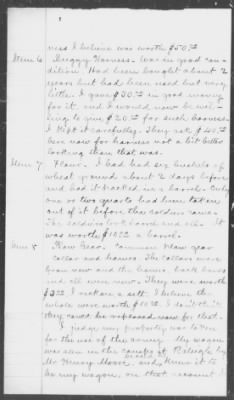 ness I believe was worth $50.00
Item 6 Buggy Harness. Was in good con-
dition. Had been bought about 2
years but had been used but very
little. I gave $30.00 in good money
for it, and I would now be will-
ing to give $20.00 for such harness
I kept it carefully. They ask $45.00
here now for harness not a bit better
looking than that was.
Item 7 Flour. I had had six bushels of
wheat ground about 2 days before
and had it packed in a barrel. Only
one or two quarts had been taken
out of it before the soldiers came.
The soldiers took barrel and all. It
was worth $14.00 a barrel.
Item 8 Plow Gear. Common Plow gear
collar and hames. The collars were
bran new and the hames, back bands
and all were new. They were worth
$3.00 I reckon a sett. I believe the
whole were worth $10.00
they could be replaced now for that.
I judge my property was taken
for the use of the army. My wagon
was seen in the camps at Raleigh by
Mr Henry Moore, and knew it to
be my wagon, on that account I